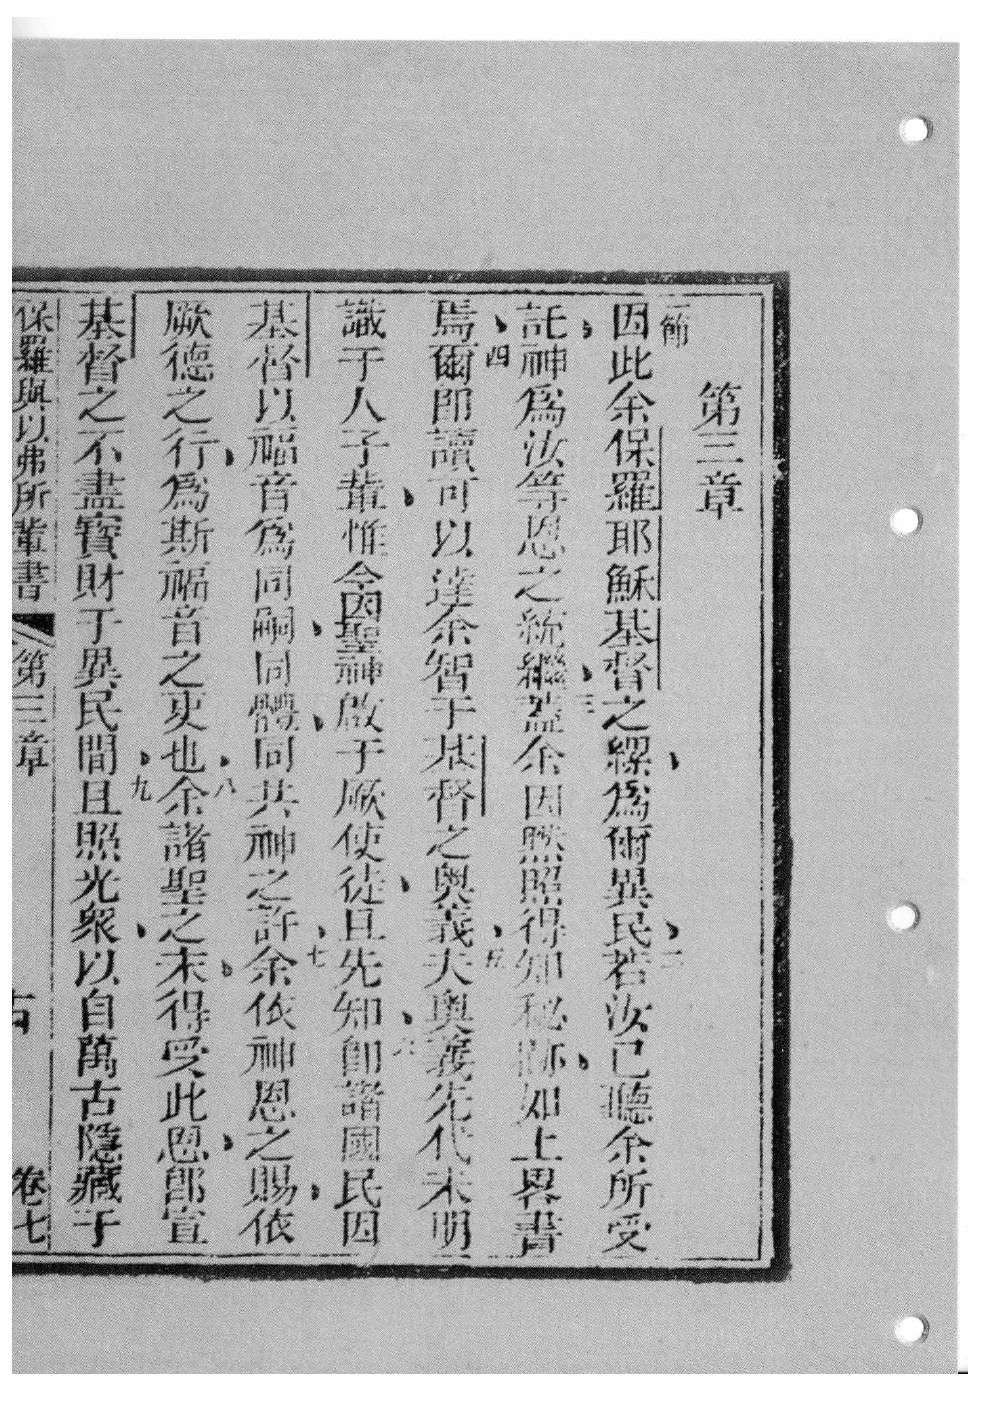 第三章
一節
因此余保羅耶穌基督之縲爲爾異民若汝已聽余所受
二
託神爲汝等恩之統繼蓋余因黙照得知秘跡如上畧書
三
焉爾即讀可以達余智于基督之奧義夫奧義先代未明
四 五
識于人子輩惟今因聖神啟于厥使徒且先知卽諸國民因
六
基督以福音爲同嗣同體同共神之許余依神恩之賜依
七
厥德之行爲斯福音之吏也余諸聖之末得受此恩卽宣
八
基督之不盡寶財于異民間且照光衆以自萬古隱藏于
九
保羅與以弗所輩書 第三章 卷七